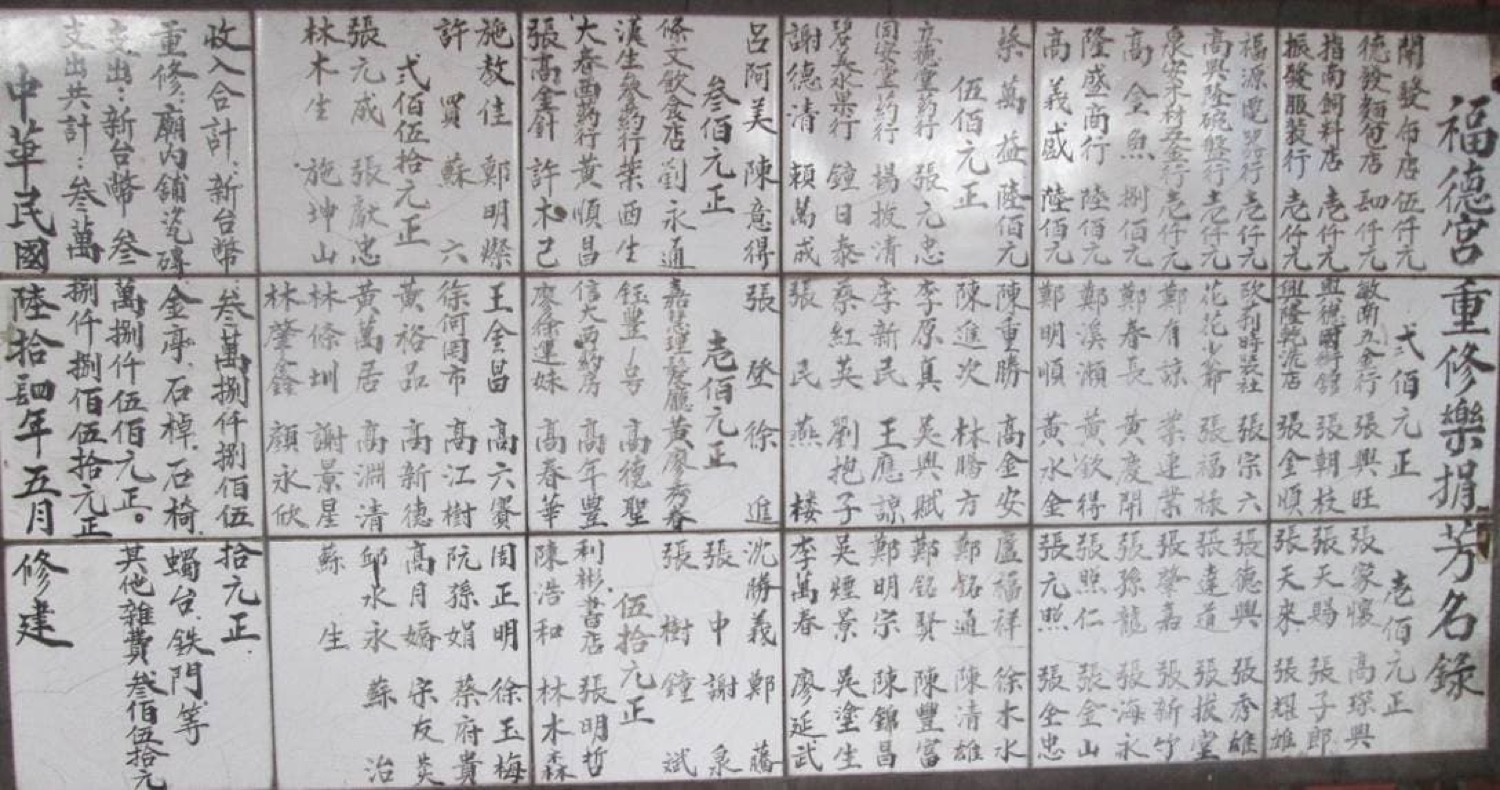 福德宮重修樂捐芳名錄
開發布店伍仟元
德發麵包店四仟元
指南飼料店壱仟元
振發服裝行壱仟元
福源電器行壱仟元
高興隆碗盤行壱仟元
泉安木材五金行壱仟元
高金魚捌佰元
隆盛商行陸佰元
高義盛陸佰元
蔡萬益陸佰元
伍佰元正
立德堂葯行 張元忠
同安堂葯行 楊披清
碧美水果行 鐘日泰
謝德清 賴萬成
呂阿美 陳意得
叁佰元正
條文飲食店 劉永通
漢生參葯行 葉西生
大春西葯行 黃順昌
張高金針 許木己
施敖佳 鄭明燦
許買 蘇六
弍佰伍拾元正
張元成 張献忠
林木生 施坤山
弍佰元正
敏南五金行 張興旺
興德國術館 張朝枝
興隆乾洗店 張金順
欣利時裝社 張宗六
花花少爺 張福祿
鄭有諒 業連業
鄭春長 黃慶開
鄭溪瀨 黃欽得
鄭明順 黃水金
陳重勝 高金安
陳進次 林勝方
李原真 吳興賦
李新民 王應諒
蔡紅英 劉抱子
張民 燕樓
張登 徐進
壱佰元正
嘉慧理髮廳 黃廖秀春
鈺豐号 高德聖
信大西葯房 高年豐
廖徐運妹 高春華
王金昌 高六賽
徐何罔市 高江樹
黃裕品 高新德
黃萬居 高淵清
林條圳 謝景星
林肇鑫 顏永欣
壱佰元正
張家懷 高琛興
張天賜 張子郎
張天來 張耀雄
張德興 張秀雄
張達道 張拔堂
張肇嘉 張新竹
張孫龍 張海永
張照仁 張金山
張元照 張金忠
盧福祥 徐木水
鄭銘通 陳清雄
鄭銘賢 陳豐富
鄭明宗 陳錦昌
吳煙景 吳塗生
李萬春 廖延武
沈勝義 鄭藤
張中 謝泉
張樹 鐘斌
伍拾元正
利彬書店 張明哲
陳浩和 林木森
周正明 徐玉梅
阮孫娟 蔡府貴
高月嬌 宋友英
邱水永 蘇治
蘇生
收入合計:新台幣 叁萬捌仟捌佰伍拾元正
重修:廟內舖瓷磚.金亭.石棹.石椅.蠋台.鉄門.等
支出:新台幣 叁萬捌仟伍佰元正。其他雜費叁佰伍拾元
支出共計:叁萬捌仟捌佰伍拾元正
中華民國陸拾四年五月修建